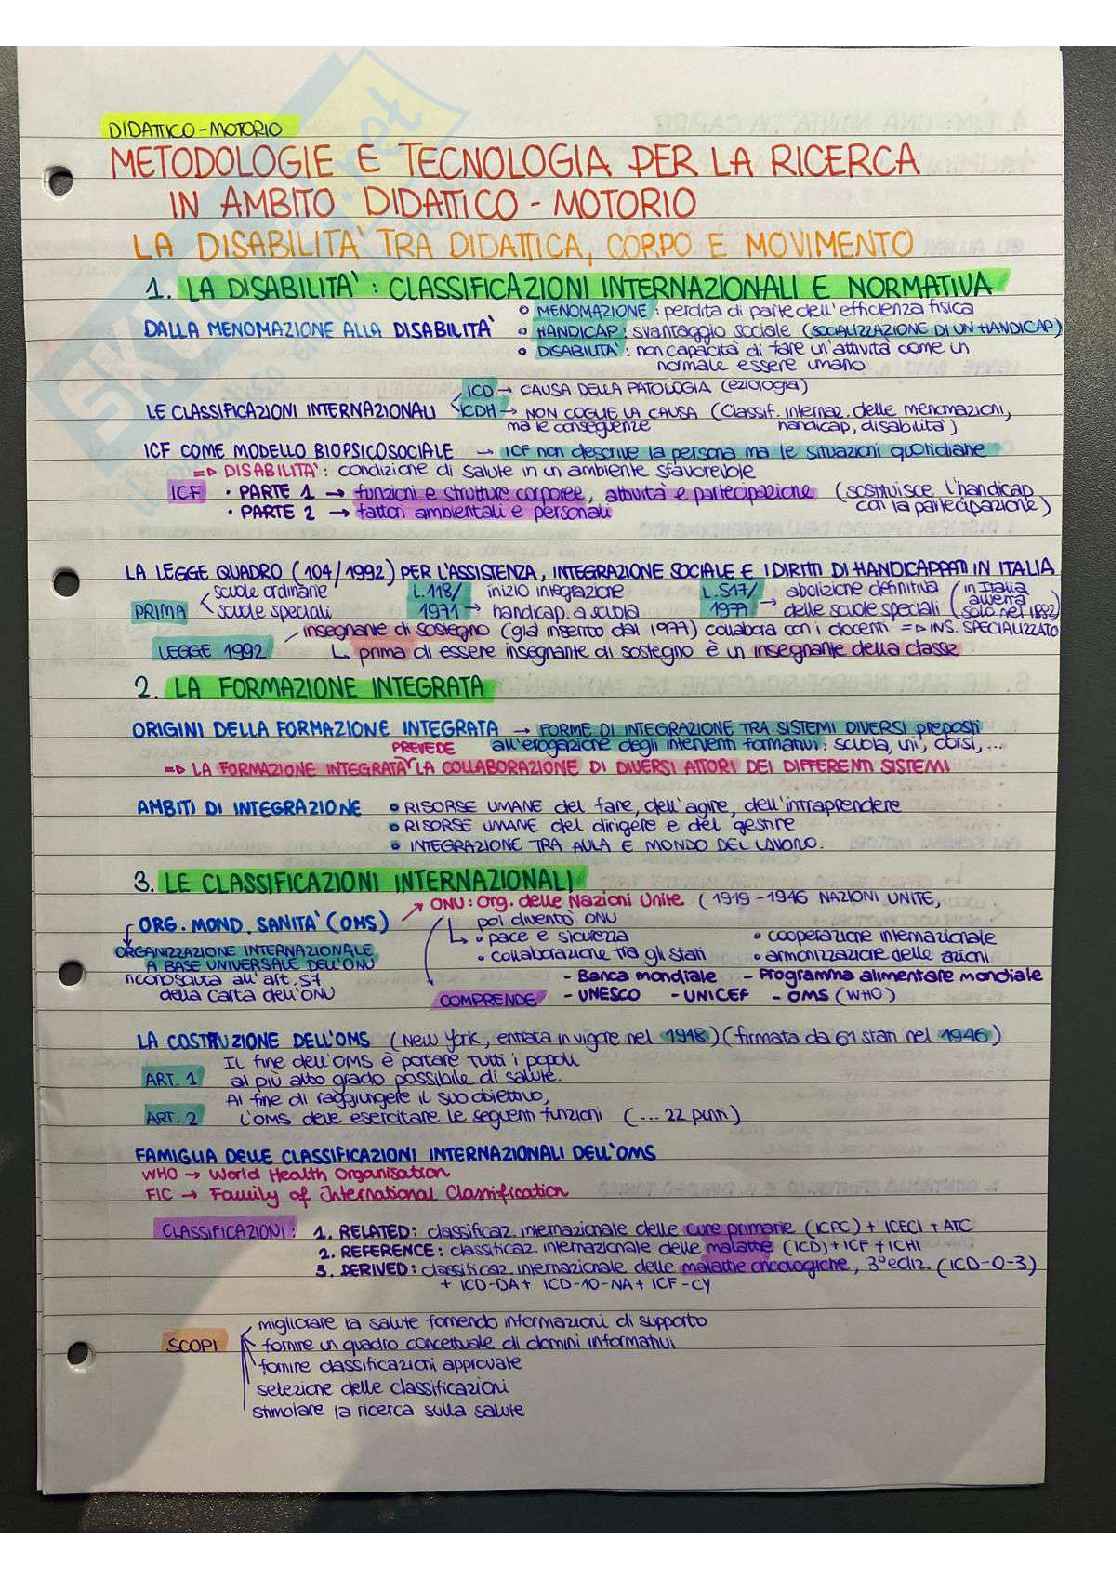 DIDATTICO-MOTORIO
METODOLOGIE E TECNOLOGIA PER LA RICERCA
IN AMBITO DIDATTICO-MOTORIO
LA DISABILITA' TRA DIDATTICA, CORPO E MOVIMENTO
1. LA DISABILITA': CLASSIFICAZIONI INTERNAZIONALI E NORMATIVA
DALLA MENOMAZIONE ALLA DISABILITA'
• MENOMAZIONE: perdita di parte dell'efficienza fisica
• HANDICAP: svantaggio sociale (SOCIALIZZAZIONE DI UN HANDICAP)
• DISABILITA': non capacità di fare un'attività come un
normale essere umano
LE CLASSIFICAZIONI INTERNAZIONALI
ICD → CAUSA DELLA PATOLOGIA (eziologia)
ICDH → NON COGLIE LA CAUSA (Classif. internaz. delle menomazioni,
ma le conseguenze handicap, disabilità)
ICF COME MODELLO BIOPSICOSOCIALE → ICF non descrive la persona ma le situazioni quotidiane
=> DISABILITA': condizione di salute in un ambiente sfavorevole
ICF • PARTE 1 → funzioni e strutture corporee, attività e partecipazione (sostituisce l'handicap
con la partecipazione)
• PARTE 2 → fattori ambientali e personali
LA LEGGE QUADRO (104/1992) PER L'ASSISTENZA, INTEGRAZIONE SOCIALE E I DIRITTI DI HANDICAPPATI IN ITALIA
PRIMA
scuole ordinarie
scuole speciali
L.118/ inizio integrazione
1971 → handicap. a scuola
L.517/ abolizione definitiva (in Italia
1977 → delle scuole speciali avverrà
solo nel 1992)
LEGGE 1992
insegnante di sostegno (già inserito dal 1977) collabora con i docenti => INS. SPECIALIZZATO
↳ prima di essere insegnante di sostegno è un insegnante della classe
2. LA FORMAZIONE INTEGRATA
ORIGINI DELLA FORMAZIONE INTEGRATA → FORME DI INTEGRAZIONE TRA SISTEMI DIVERSI preposti
all'erogazione degli interventi formativi: scuola, uni, corsi,...
PREVEDE
=> LA FORMAZIONE INTEGRATA LA COLLABORAZIONE DI DIVERSI ATTORI DEI DIFFERENTI SISTEMI
AMBITI DI INTEGRAZIONE • RISORSE UMANE del fare, dell'agire, dell'intraprendere
• RISORSE UMANE del dirigere e del gestire
• INTEGRAZIONE TRA AULA E MONDO DEL LAVORO.
3. LE CLASSIFICAZIONI INTERNAZIONALI
ORG. MOND. SANITA' (OMS)
ORGANIZZAZIONE INTERNAZIONALE
A BASE UNIVERSALE DELL'ONU
riconosciuta all'art. 57
della Carta dell'ONU
ONU: Org. delle Nazioni Unite (1919-1946 NAZIONI UNITE,
poi diventò ONU
↳ • pace e sicurezza • cooperazione internazionale
• collaborazione tra gli stati • armonizzazione delle azioni
COMPRENDE
- Banca mondiale - Programma alimentare mondiale
- UNESCO - UNICEF - OMS (WHO)
LA COSTRUZIONE DELL'OMS (New York, entrata in vigore nel 1948) (firmata da 61 stati nel 1946)
ART. 1
Il fine dell'OMS è portare tutti i popoli
al più alto grado possibile di salute.
ART. 2
Al fine di raggiungere il suo obiettivo,
l'OMS deve esercitare le seguenti funzioni (... 22 punti)
FAMIGLIA DELLE CLASSIFICAZIONI INTERNAZIONALI DELL'OMS
WHO → World Health Organisation
FIC → Family of International Classification
CLASSIFICAZIONI: 1. RELATED: classificaz. internazionale delle cure primarie (ICPC) + ICECI + ATC
2. REFERENCE: classificaz. internazionale delle malattie (ICD) + ICF + ICHI
3. DERIVED: classificaz. internazionale delle malattie oncologiche, 3° ediz. (ICD-O-3)
+ ICD-DA + ICD-10-NA + ICF-CY
SCOPI
migliorare la salute fornendo informazioni di supporto
fornire un quadro concettuale di domini informativi
fornire classificazioni approvate
selezione delle classificazioni
stimolare la ricerca sulla salute